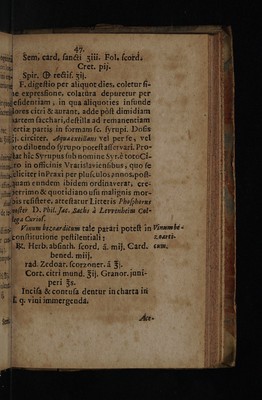 47.
Sem. card. sancti ʒiii. Fol. scord.
Cret. pij.
Spir. rectif. ʒij.
F. digestio per aliquot dies, coletur si-
ne expressione, colatura depuretur per
residentiam, in qua aliquoties infunde
flores citri & aurant. adde post dimidiam
partem sacchari, destilla ad remanentiam
tertiæ partis in formam sc. syrupi. Dosis
circiter. Aquæ vel per se, vel
pro bibendo syrupo potest asservari. Pro-
bat hîc Syrupus sub nomine Syr. è toto Ci-
tro in officinis Vratislaviensibus, quo fe-
liciter in Praxi per plusculos annos, post-
quam eundem ibidem ordinaveram, cre-
berrimo & quotidiano usu malignis mor-
bis resistere, attestatur Litteris Phosphorus
noster D. Phil. Jac. Sachs à Levvenheim Col-
lega Curios.
Vinum bezoardicum tale parari potest in
constitutione pestilentiali:
Vinum be-
zoardi-
cum.
℞. Herb. absinth. scord. á. mij. Card.
bened. miij.
rad. Zedoar. scorzoner. á ℥j.
Cort. citri mund. ℥ij. Granor. juni-
peri ℥s.
Incisa & contusa dentur in charta in
q. vini immergenda.